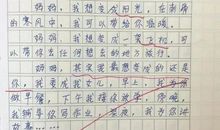 妈妈，我想变成阳光，在刺骨
的寒风中，我可以带给你温暖。
妈妈，我想变成一架飞机，可
以带你去任何想去的地方旅行。
妈妈，其实我最想变成的还是
你，我变成我女儿，早上，我为你
做早餐，下午我接你放学，傍晚，
我辅导你写作业，我为你讲